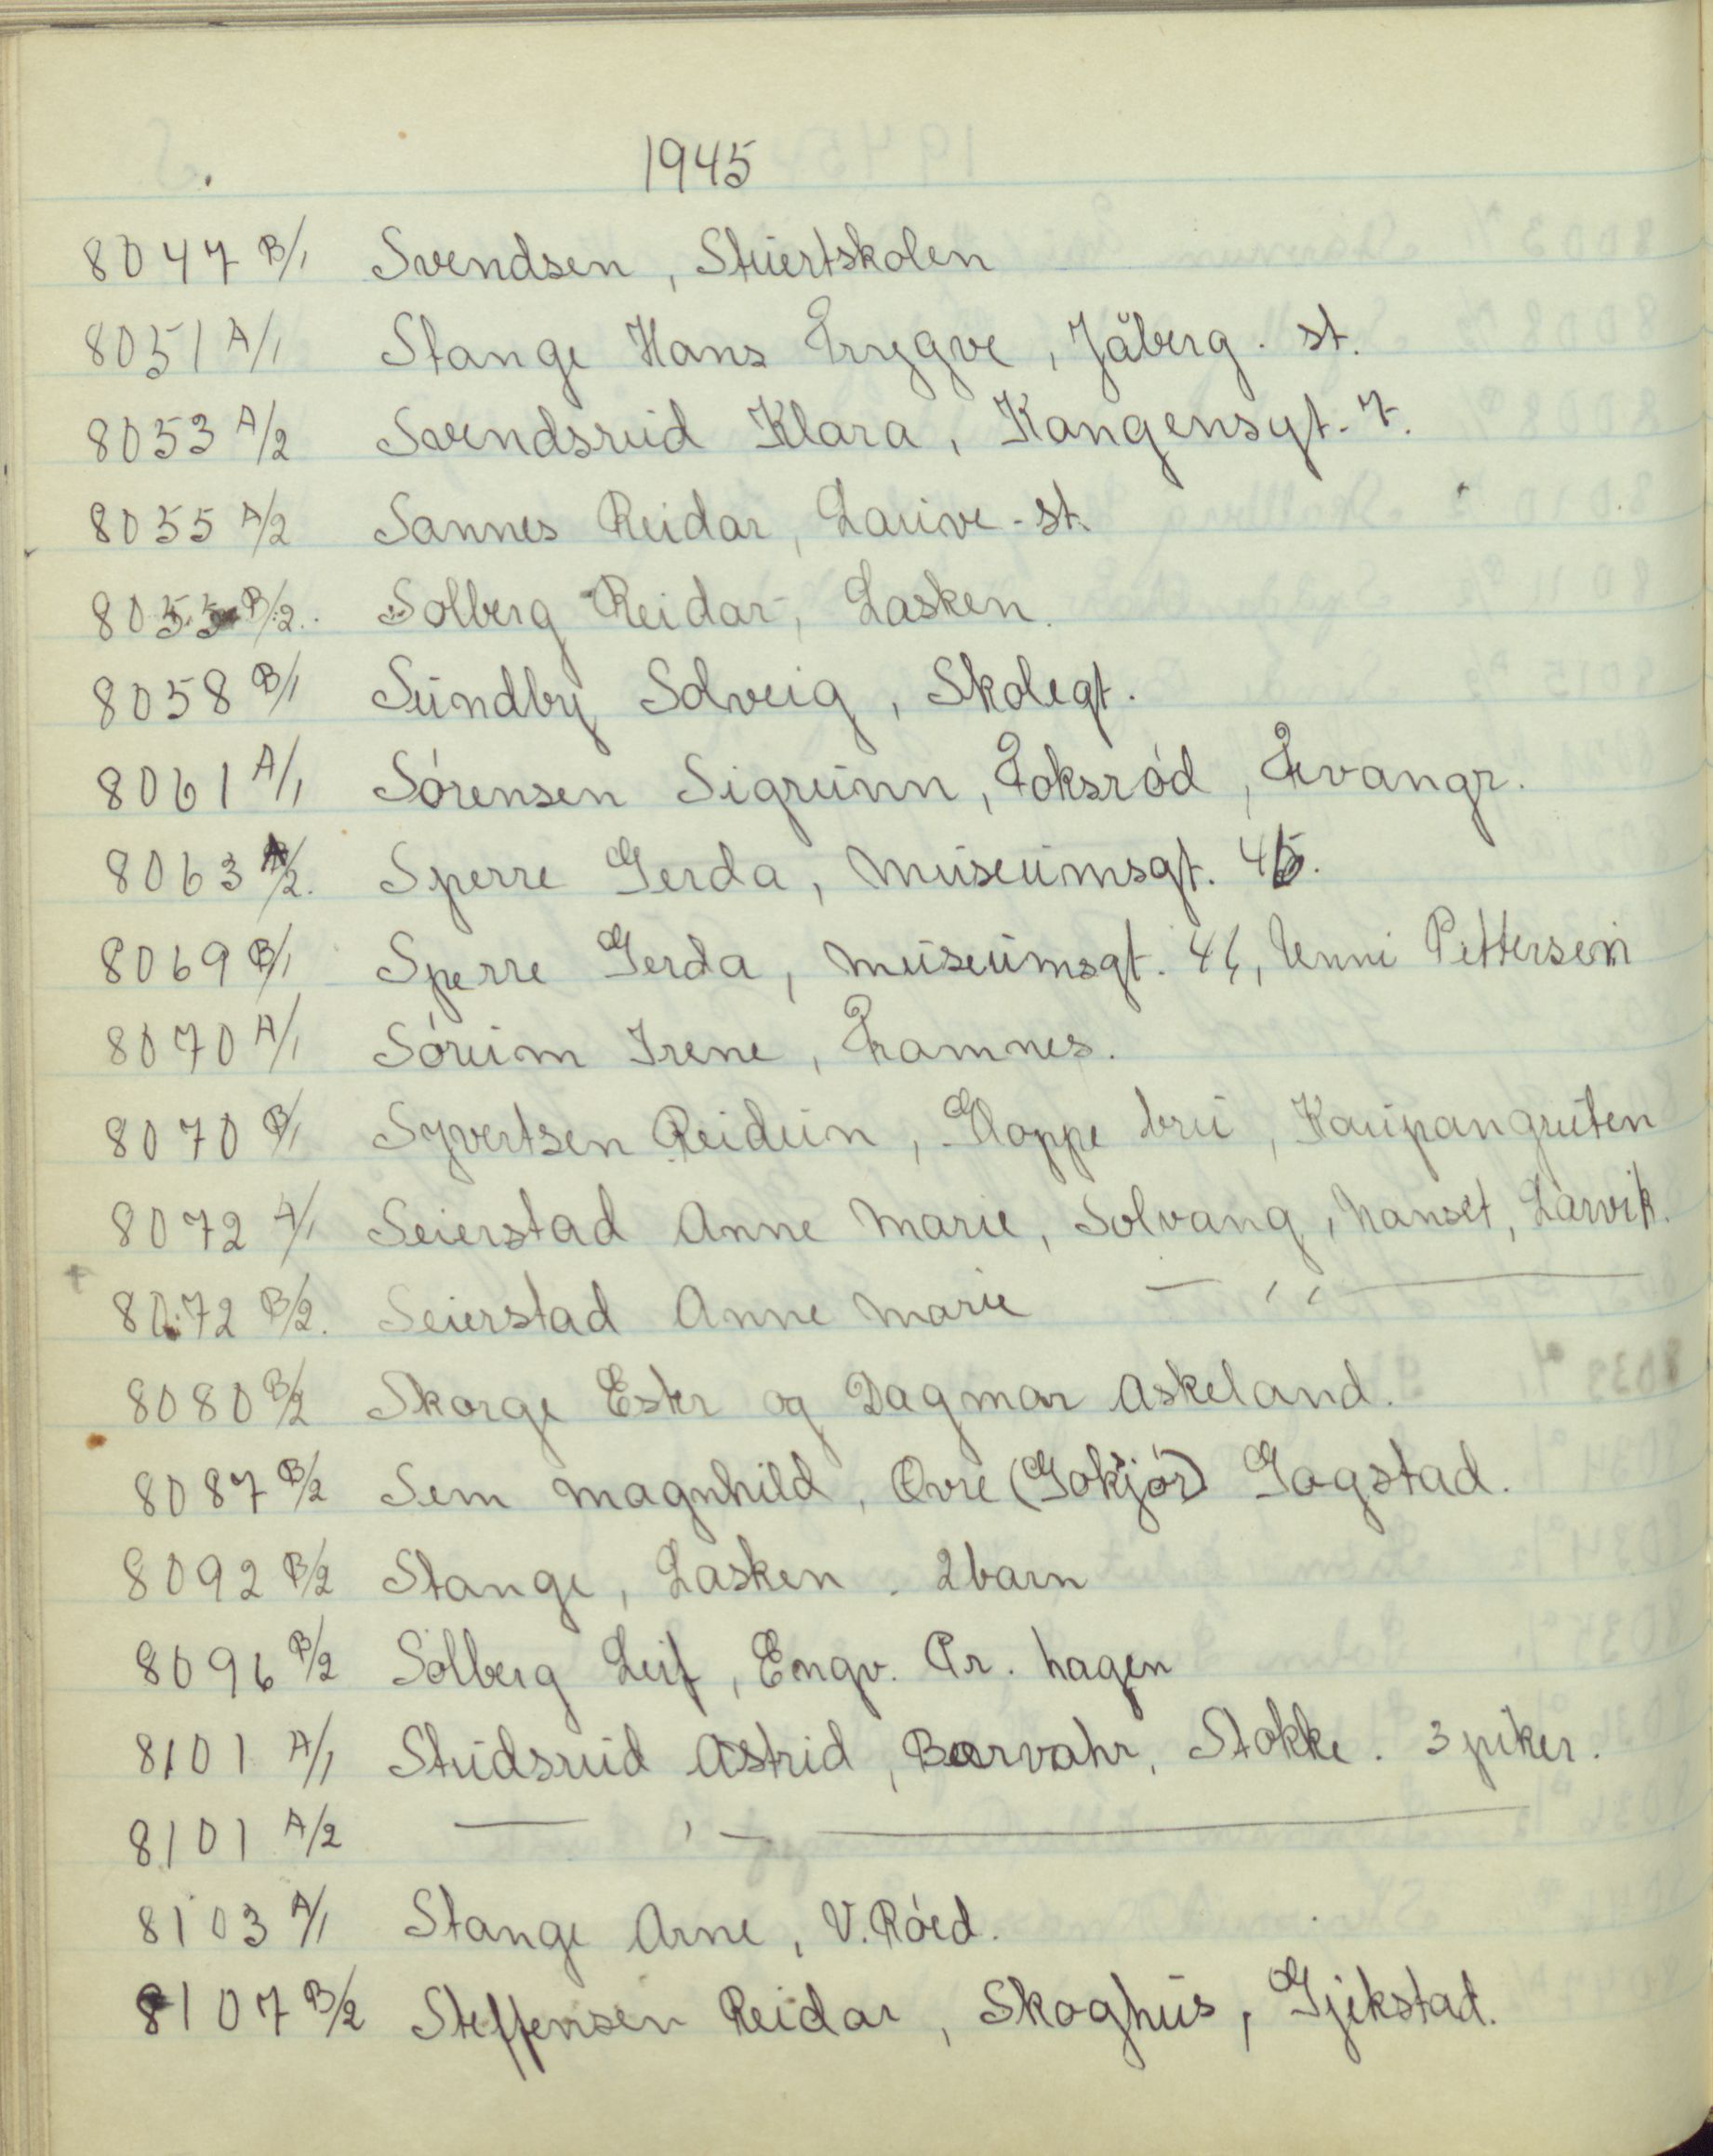 1945
8047 B/1 Svendsen, Stuertskolen
8051 A/1 Stange Hans Trygve, Jåberg. st.
8053 A/2 Svendsrud Klara, Kongensgt. 7.
8055 A/2 Sannes Reidar, Lauve-st.
8055 B/2. Solberg Reidar, Lasken.
8058 B/1 Sundby Solveig, Skolegt.
8061 A/1 Sórensen Sigrunn, Foksród, Kvangr.
8063 A/2. Sperre Gerda, Museumsgt. 45.
8069 B/1 Sperre Gerda, Museumsgt. 45, Unni Pettersen
8070 A/1 Sórum Irene, Framnes.
8070 B/1 Syvertsen Reidun, Kloppe bru, Kaupangruten
8072 A/1 Seierstad Anne Marie, Solvang, Nanset, Larvik.
8072 B/2. Seierstad Anne Marie — ,, —
8080 B/2 Skorge Ester og Dagmar Askeland.
8087 B/2 Sem Magnhild, Óvre (Gokjór) Gogstad.
8092 B/2 Stange, Lasken. 2 barn
8096 B/2 Solberg Leif, Engv. Pr. hagen
8101 A/1 Studsrud Astrid, Borvahr, Stokke. 3 piker.
8101 A/2 — ,, —
8103 A/1 Stange Arne, V. Róed.
8107 B/2 Steffensen Reidar, Skoghus, Gjekstad.